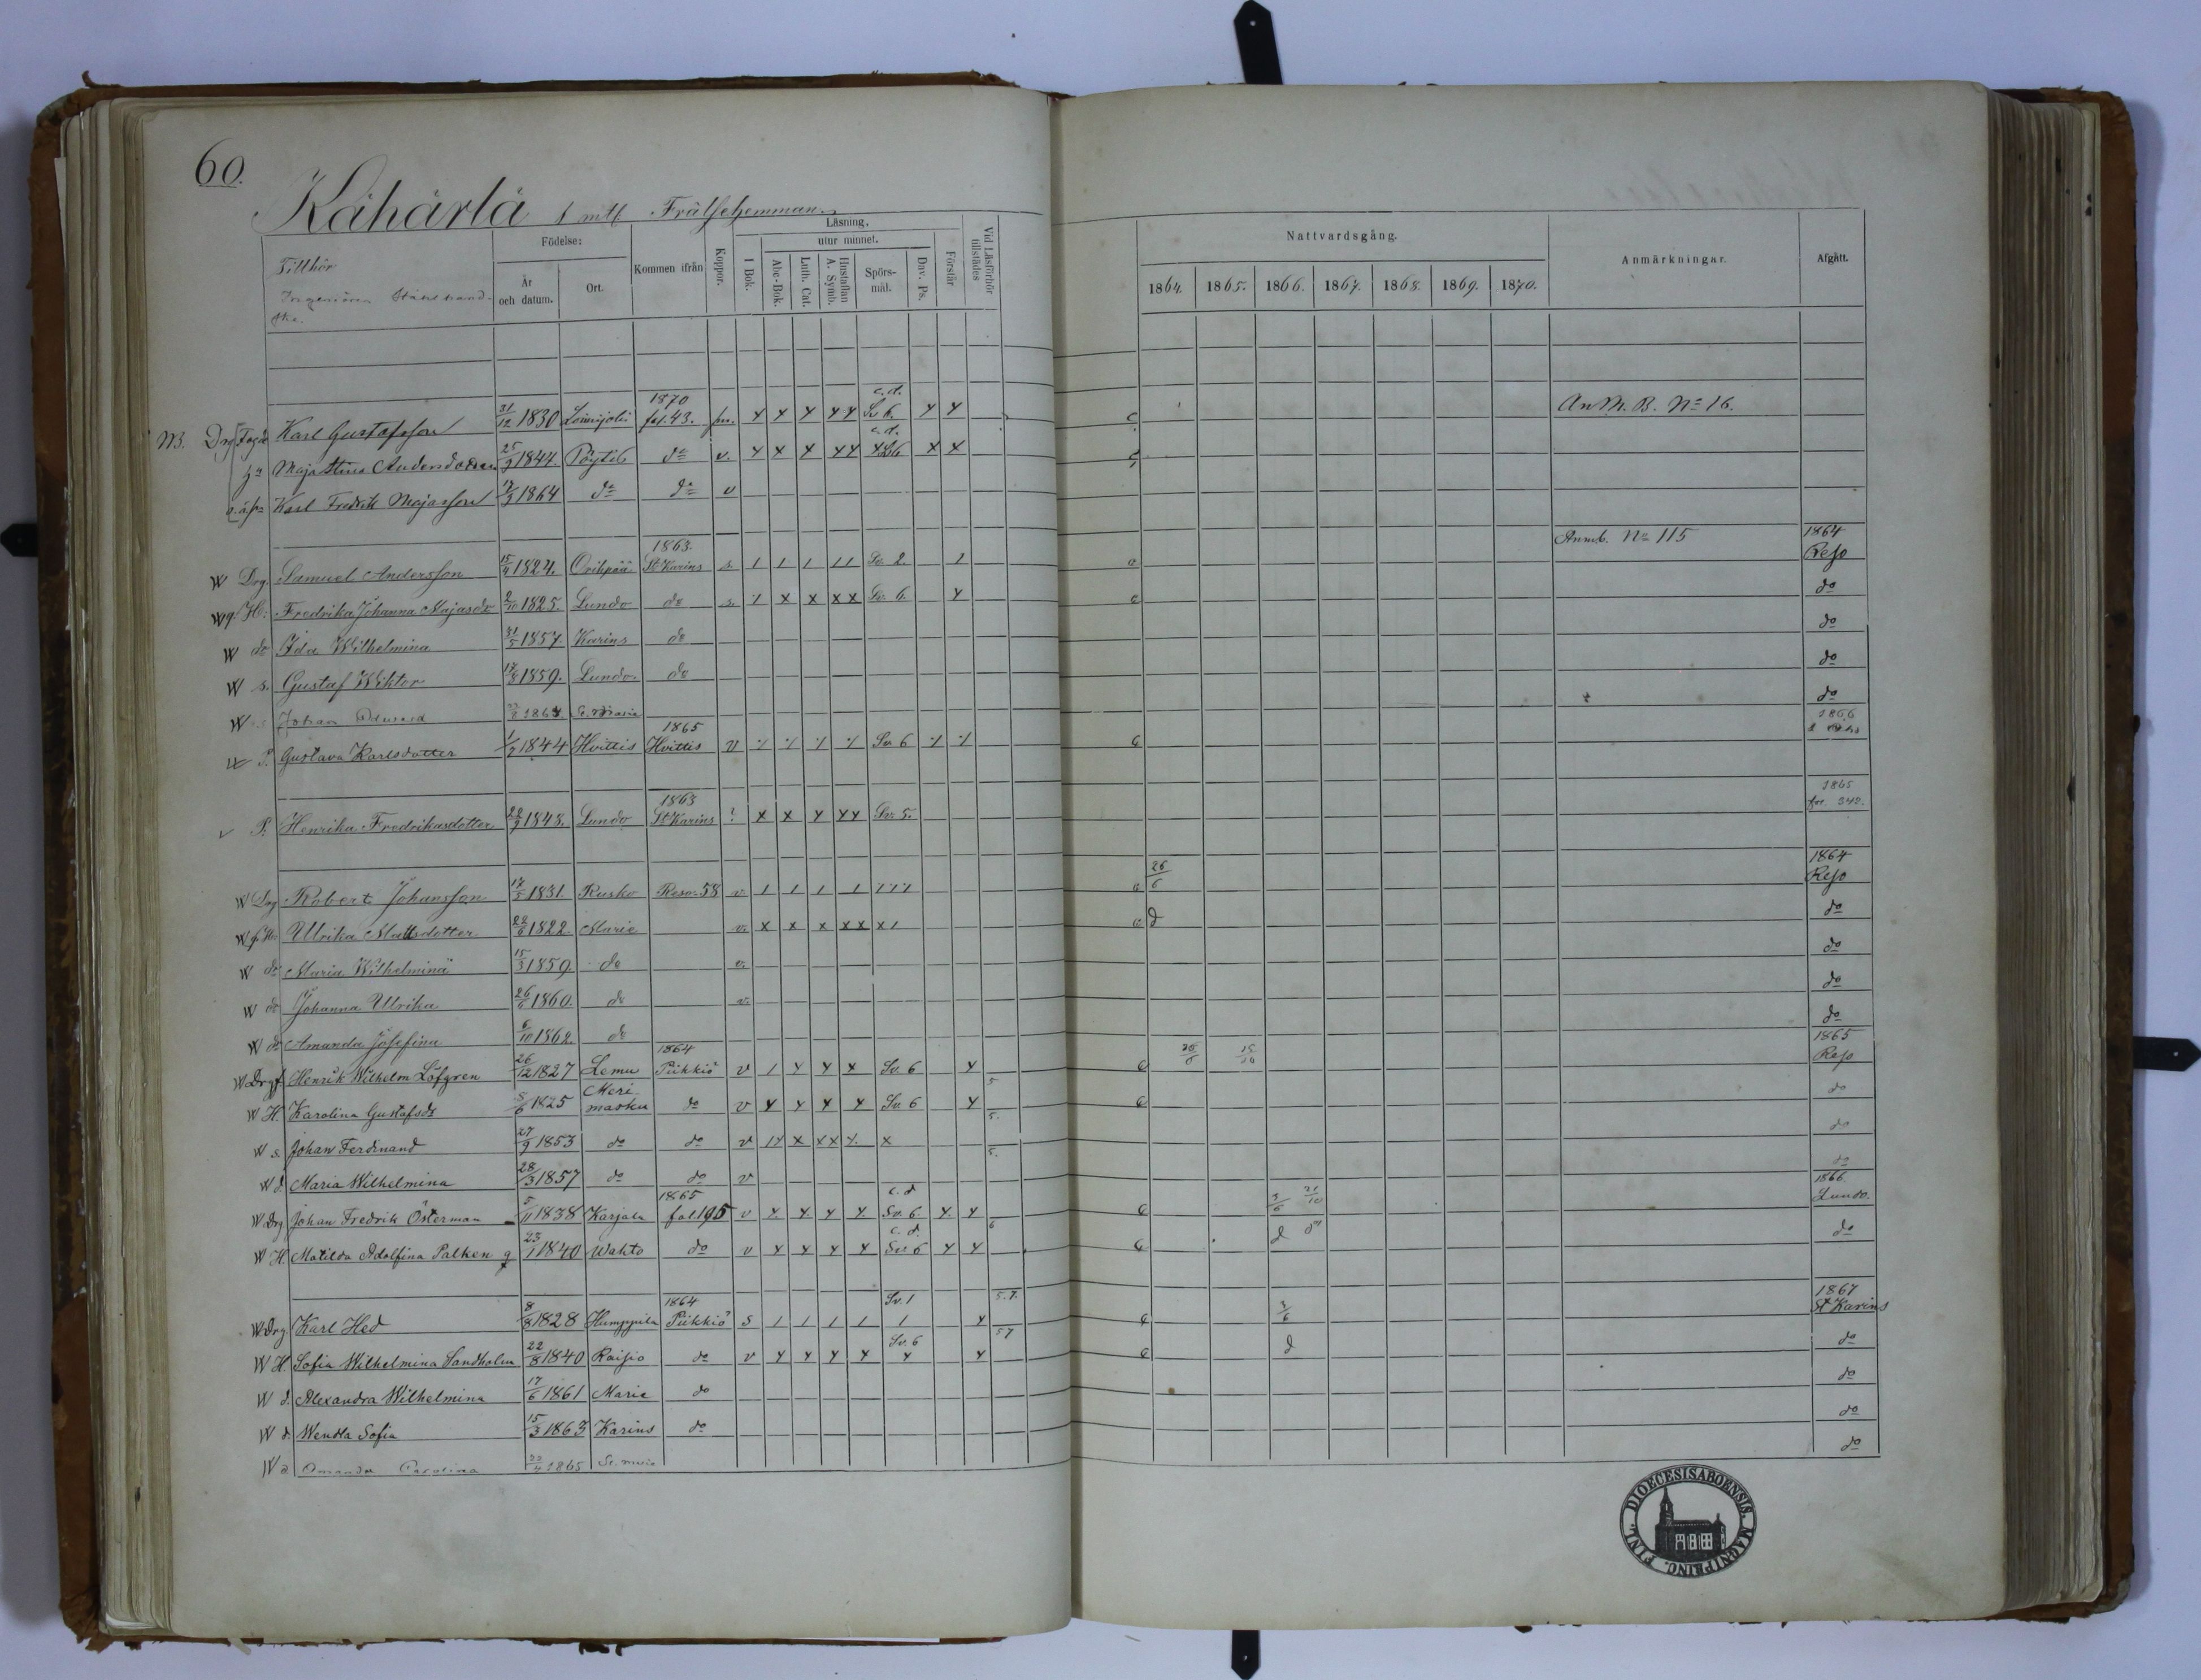 60.
Kähärlä 1 mtl Frälsehemman.
Tillhör
Ingeniören
Födelse: År och datum. Ort. Kommen ifrån Koppor. Läsning. I Bok. utur minnet. Abc-Bok. Luth. Cat. Hustaflan A. Symb. Spörs-mål. Dav. Ps. Förstår Vid Läsförhör tillstädes Nattvardsgång. 1864. 1865. 1866. 1867. 1868. 1869. 1870. Anmärkningar. Afgått.
1870 c.d.
Drg Karl Gustafsson 31/12 1830 Loimijoki fol. 43. x x x x x Sv 6. x x AnM. B. No 16.
c.d.
Maja Stina Andersdotter 25/9 1844. Pöytis do v. x x x x x 6 x x
Karl Fredrik Majasson 17/3 1864 do do v
1863. Anmb. No 115 1864
W Drg. Samuel Andersson 15/9 1824. Oripää St Karins s. 1 1 1 1 1 Sv. 2. 1 c Reso
H: Fredrika Johanna Majasdr 2/10 1825. Lundo do s. x x x x Sv. 6. x c do
W do Ida Wilhelmina 31/5 1857 Karins do do
W s. Gustaf Wiktor 17/8 1859. Lundo do do
W s Johan 1864 St. Marie do
1865 1866
P. Gustava Karlsdotter 1/2 1844 Hvittis Hvittis v Sv 6 c
1863 1865
P. Henrika Fredrikasdotter 22/9 1848. Lundo St Karins x x x x x Sv. 5. fol. 342.
1864
W Drg Robert Johansson 17/5 1831. Rusko Reso. 58 v. 1 1 1 1 c 26/6 Reso
W H: Ulrika Mattsdotter 22/6 1822. Marie v. x x x x x x 1 c d do
W do Maria Wilhelmina 15/3 1859. do v. do
W do Johanna Ulrika 26/6 1860. do v. do
W do Amanda Josefina 6/10 1862. do do
1864 1865
W Drg f Henrik Wilhelm Löfgren 26/12 1827 Lemu Piikkiö v 1 x x x Sv. 6 x 5 c Reso
W H. Karolina Gustafsdr 5/6 1825 Merimasku do v x x x x Sv 6 x 5. c do
W s. Johan Ferdinand 27/9 1853 do do v x x x x 5. do
W d. Maria Wilhelmina 28/3 1857 do do v do
1865 c.d 1866.
W Drg Johan Fredrik Österman 5/11 1838 Karjala fol. 195 v x x x x Sv. 6. x x 6 c 3/6 21/10 Lundo.
c.d.
W H. Matilda Adolfina Palken 23/1 1840 Wahto do v x x x x Sv. 6 x x c d do do
1864 Sv. 1 5.7. 1867
W Drg. Karl Hed 8/8 1828 Humppila Piikkiö s 1 1 1 1 1 x c 3/6 St Karins
Sv. 6 57
W H Sofia Wilhelmina Sandholm 22/8 1840 Raisio do v x x x x x x c d do
W d. Alexandra Wilhelmina 17/6 1861 Marie do do
W d. Wendla Sofia 15/3 1863 Karins do do
W d Amanda Carolina 22/4 1865 St. Marie do
DIOECESIS ABOENSIS. MAGNI PRINC. FINL.